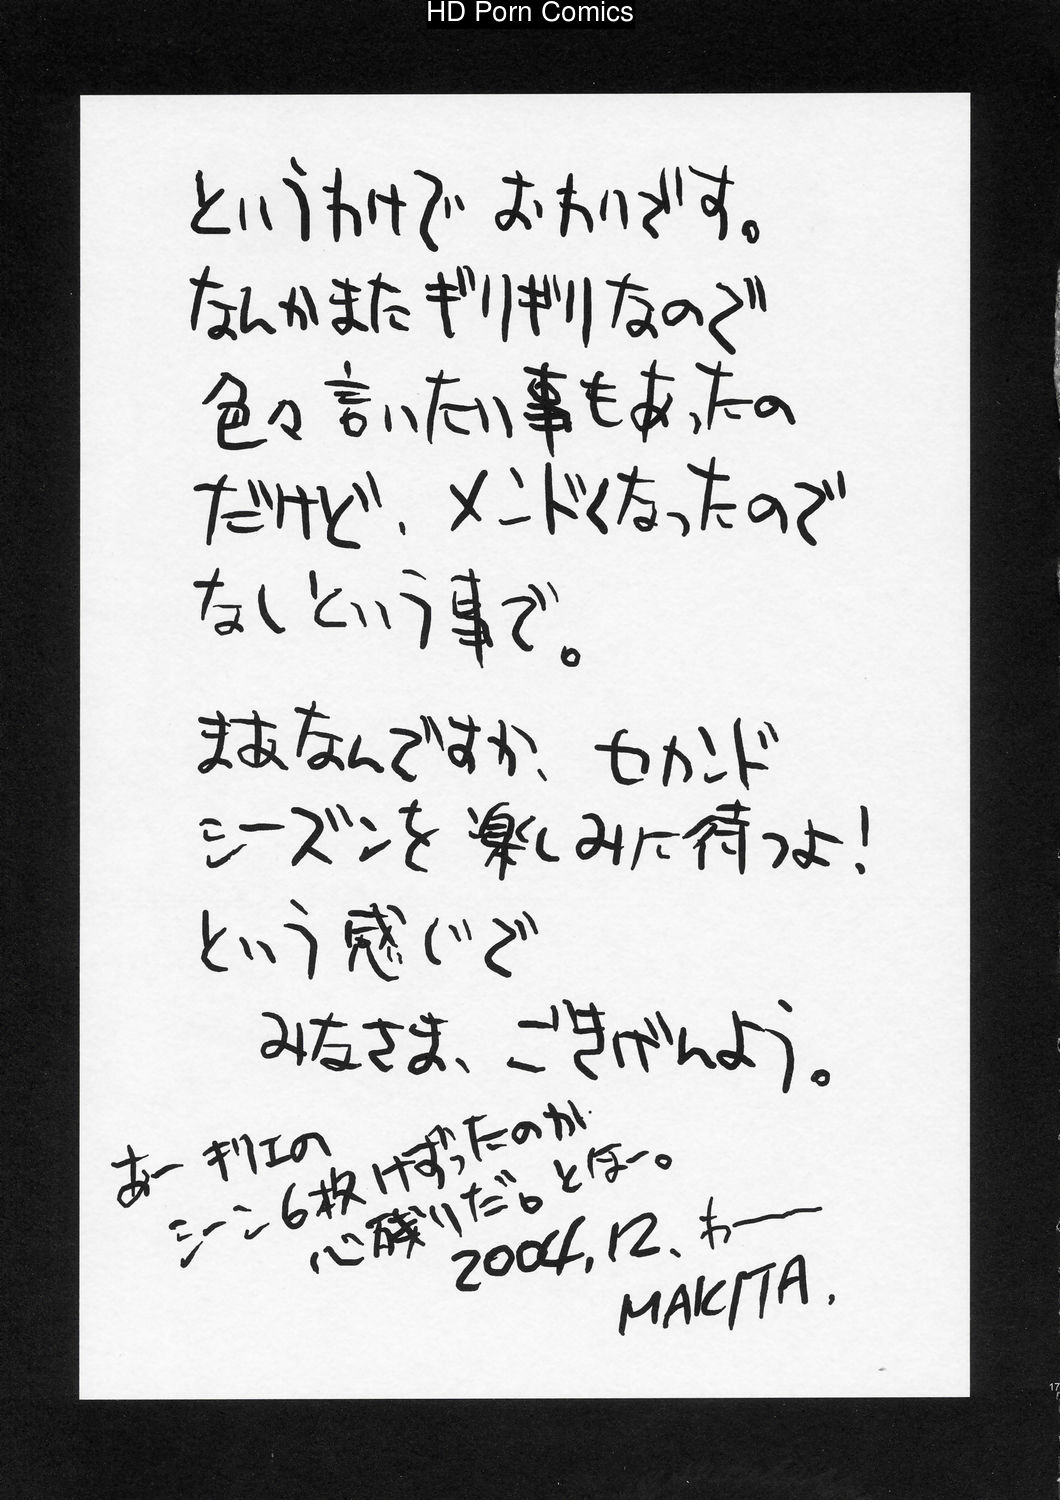 HD Porn Comics
というわけで おわりです。
なんかまたギリギリなので
色々言いたい事もあったの
だけど、メンドくなったので
なしという事で。
まあなんですか、セカンド
シーズンを楽しみに待つよ!
という感じで
みなさま、ごきげんよう。
あー ギリエの
シーン6枚けずったのが
心残りだ。とほー。
2004.12. わー
MAKITA.
17